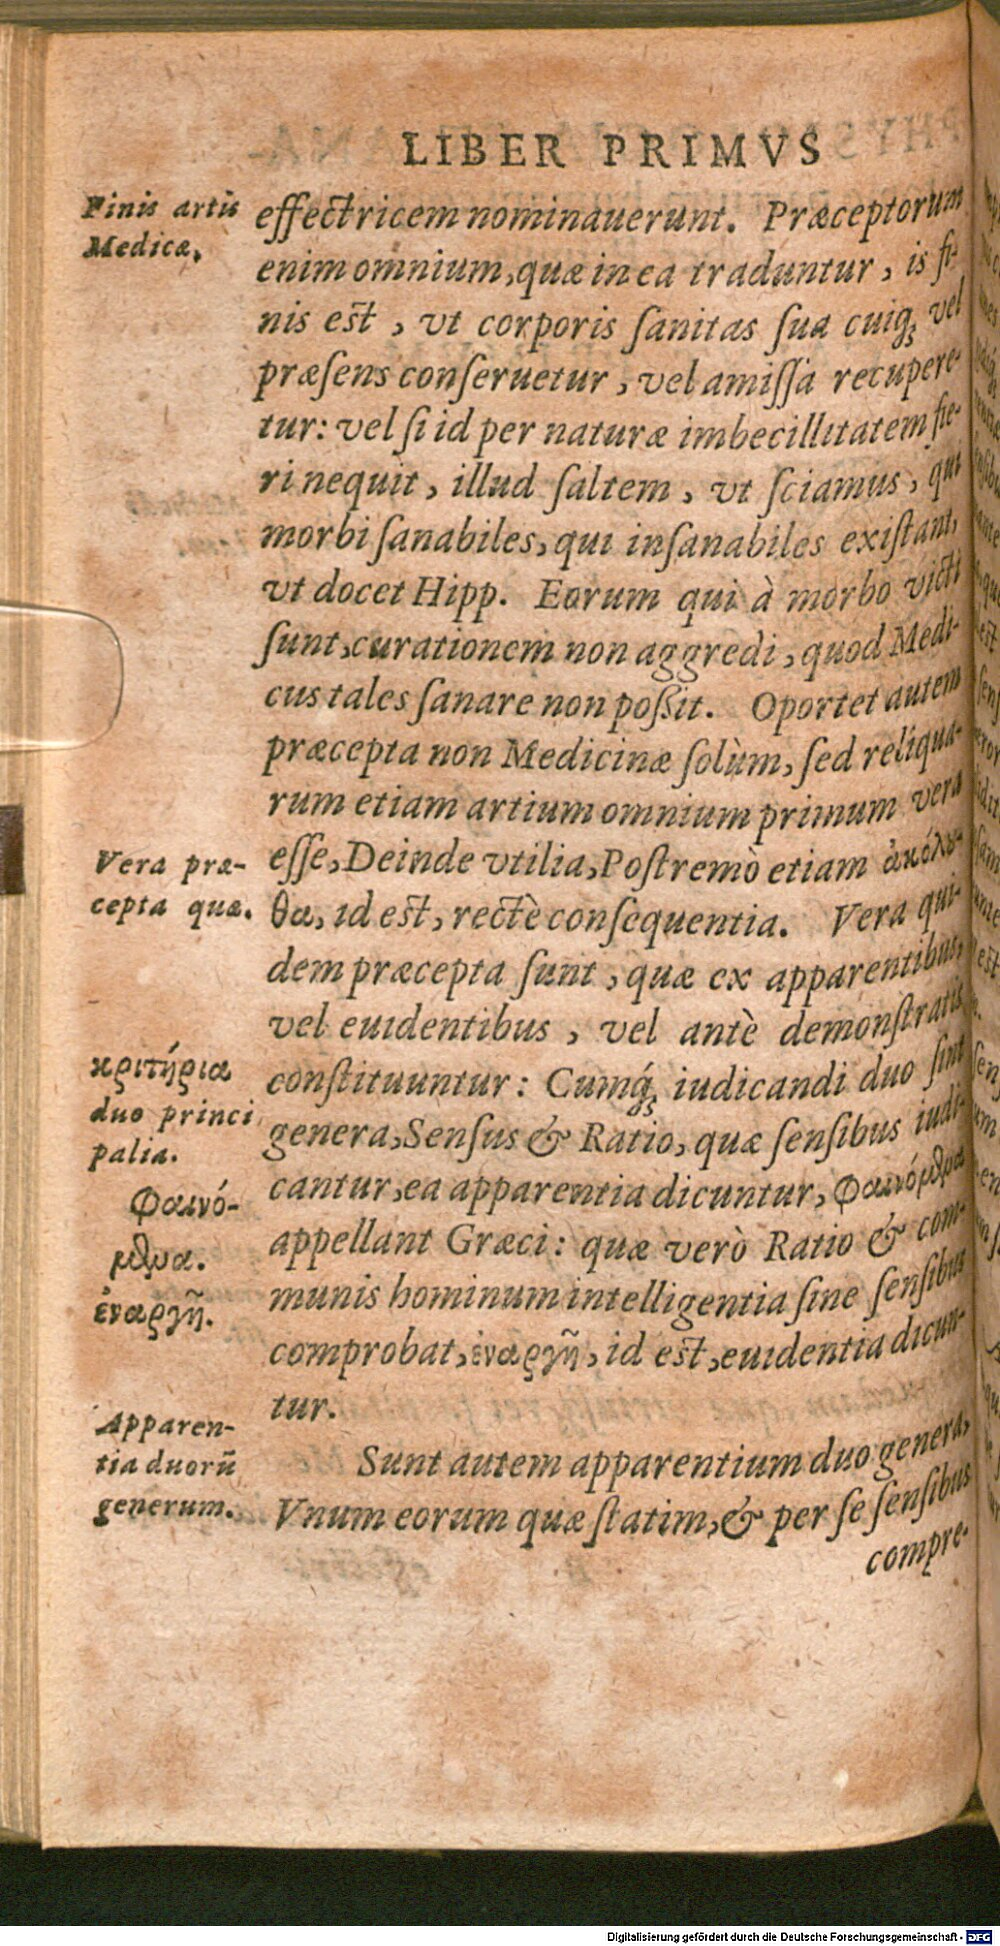 LIBER PRIMVS
Finis artis
Medicæ.
effectricem nominauerunt. Præceptorum
enim omnium, quæ in ea traduntur, is fi-
nis est, vt corporis sanitas sua cuiq; vel
præsens conseruetur, vel amissa recupere-
tur: vel si id per naturæ imbecillitatem fie-
ri nequit, illud saltem, vt sciamus, qui
morbi sanabiles, qui insanabiles existant,
vt docet Hipp. Eorum qui à morbo victi
sunt, curationem non aggredi, quod Medi-
cus tales sanare non possit. Oportet autem
præcepta non Medicinæ solùm, sed reliqua-
rum etiam artium omnium primum vera
Vera præ-
cepta quæ.
esse, Deinde vtilia, Postremò etiam ἀκόλου-
θα, id est, rectè consequentia. Vera qui-
dem præcepta sunt, quæ ex apparentibus,
vel euidentibus, vel antè demonstratis
κριτήρια
duo princi
palia.
constituuntur: Cumq́; iudicandi duo sint
genera, Sensus & Ratio, quæ sensibus iudi-
Φαινό-
μενα.
ἐναργῆ.
cantur, ea apparentia dicuntur, Φαινόμενα
appellant Græci: quæ verò Ratio & com-
munis hominum intelligentia sine sensibus
comprobat, ἐναργῆ, id est, euidentia dicun-
tur.
Apparen-
tia duorũ
generum.
Sunt autem apparentium duo genera,
Vnum eorum quæ statim, & per se sensibus
compre-
Digitalisierung gefördert durch die Deutsche Forschungsgemeinschaft - DFG